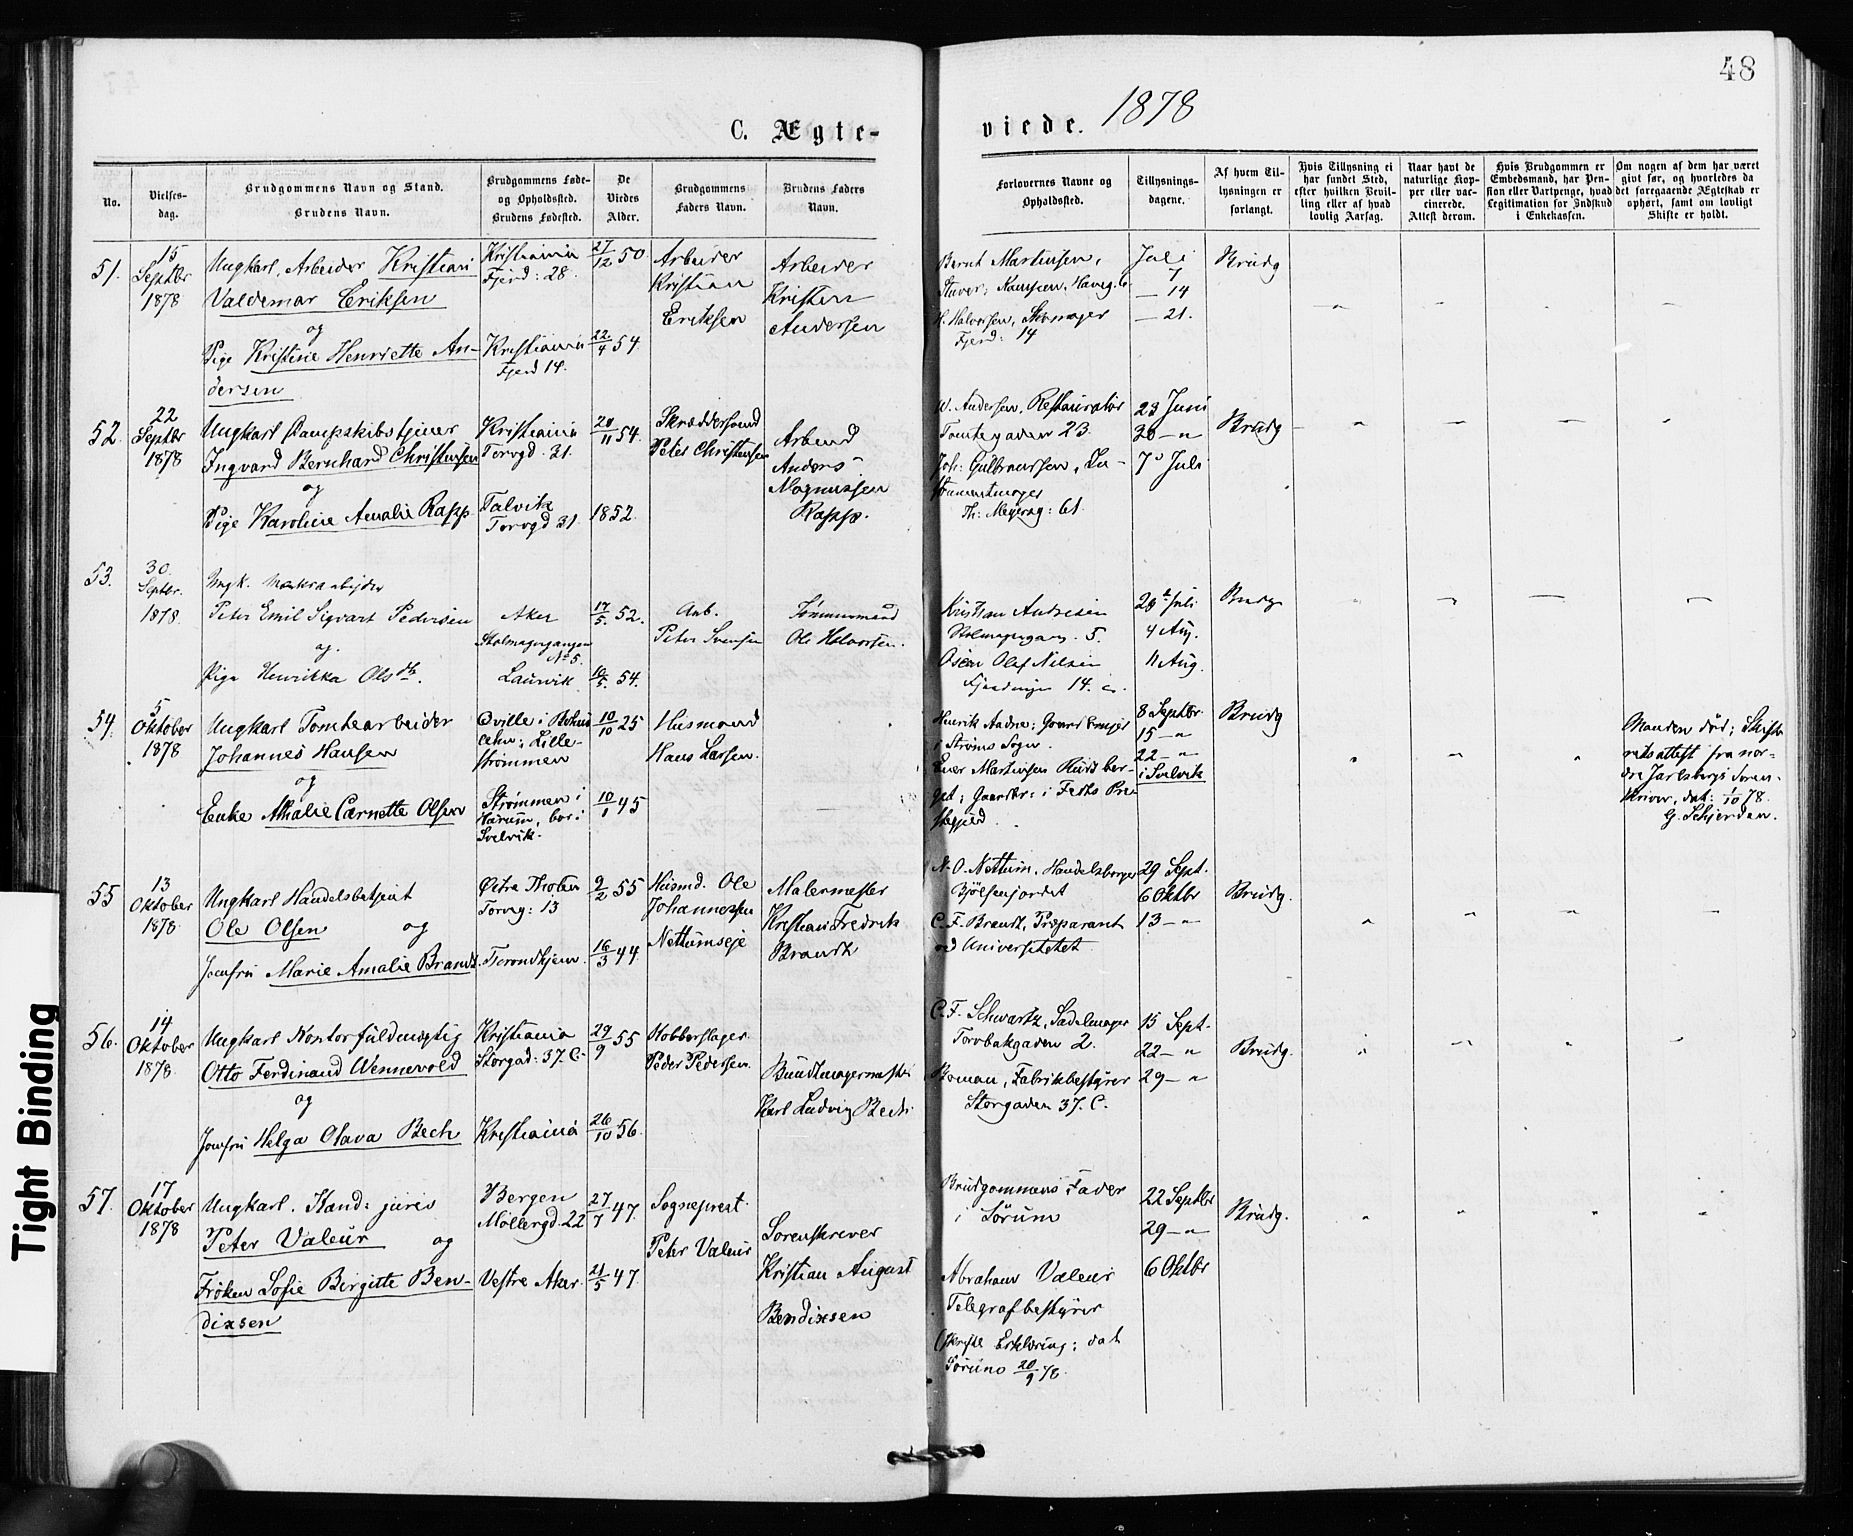 48
C. Ægte-
viede. 1878
No.
Vielses-
dag.
Brudgommens Navn og Stand.
Brudens Navn.
Brudgommens Føde-
og Opholdssted.
Brudens Fødested.
De
Viedes
Alder.
Brudgommens
Faders Navn.
Brudens Faders
Navn.
Forlovernes Navne og
Opholdssted.
Tillysnings-
dagene.
Af hvem Til-
lysningen er
forlangt.
Hvis Tillysning ei
har fundet Sted,
efter hvilken Bevil-
ling eller af hvad
lovlig Aarsag.
Naar havt de
naturlige Kop-
per eller vac-
cinerede.
Attest derom.
Hvis Brudgommen er
Embedsmand, har Pen-
sion eller Vartpenge, hvad
Legitimation for Indskud
i Enkekassen.
Om nogen af dem har været
givt før, og hvorledes da
det foregaaende Ægteskab er
ophørt, samt om lovligt
Skifte er holdt.
51.
15
Septbr
1878
Ungkarl, Arbeider Kristian
Valdemar Eriksen
og
Pige Kristine Henriette An-
dersen
Kristiania
Fjerd: 28.
Kristiania
Fjerd 14.
27/12 50.
22/4 54.
Arbeider
Kristian
Eriksen
Arbeider
Kristen
Andersen
Bernt Martinsen,
H. Halvorsen, Skomager
Fjerd: 14
Juli
7
— 14
— 21.
Brudg
52.
22
Septbr
1878
Ungkarl Dampskibstjener
Ingvard Bernhard Christensen
og
Pige Karoline Amalie Rapp
Kristiania
Torvgd. 31.
Talvik
Torvgd 31
20/11 54.
1852.
Skræddersvend
Peter Christensen
Arbeid
Anders
Magnussen
Rapp.
W. Andersen, Restauratør
Tomtegaden 23.
Joh: Gulbranssen, In-
strumentmager
Th: Meyersg: 61.
23 Juni
30 — "
7 Juli
Brudg
53.
30.
Septbr.
1878.
Ungk.
Peter Emil Sigvart Pedersen
og.
Pige Henrikka Olsdtr.
Aker
No 5.
Laurvik
17/5. 52.
10/5. 54.
Arb.
Peter Svensen
Tømmermand
Ole Halvorsen.
Kristian Andresen
5.
Oscar Olaf Nilsen
14.
28 Juli
4 Aug.
11 Aug.
Brudg
54.
5
Oktober
1878
Ungkarl Tomtearbeider
Johannes Hansen
og
Enke Amalie Carnette Olsen
Lille-
strømmen
Strømmen i
Hurum, bor i
Svelvik.
10/10 25
10/1 45
Husmand
Hans Larsen.
i Strøms Sogn.
8 Septbr
15 — "
22 — "
i Svelvik
Brudg
Manden død; Skifte-
retsattest fra nor-
dre Jarlsbergs Soren-
skriver, dat: 1/10 78.
G. Schjerdan.
55
13
Oktober
1878
Ungkarl Handelsbetjent
Ole Olsen og
Jomfru Marie Amalie Brandt
Østre Thoten
Torvg: 13
Trondhjem.
9/2 55
16/3 44
Husmd. Ole
Johannessen
Nettumseie
Malermester
Kristian Fredrik
Brandt
N. O. Nettum, Handelsborger
Bjølsenjordet
C. F. Brandt, Præparant
ved Universitetet
29 Sept.
6 Oktbr
13 — "
Brudg.
56.
14
Oktober
1878
Ungkarl Kontorfuldmægtig
Otto Ferdinand Wennevold
og
Jomfru Helga Olava Bech
Kristiania
Storgad: 37. C.
Kristiania
29/9 55
26/10 56.
Kobberslager
Peder Pedersen
Buntmagermester
Karl Ludvig Bech
C. F. Schwartz, Sadelmager
Torvbakgaden 2.
Boman, Fabrikbestyrer
Storgaden 37. C.
15 Sept.
22 — "
29 — "
Brudg.
57.
17
Oktober
1878
Ungkarl. Kand: juris
Peter Valeur og
Frøken Sofie Birgitte Ben-
dixsen
Bergen
Møllergd. 22
Vestre Aker.
27/7 47.
21/5 47.
Sogneprest
Peter Valeur
Sorenskriver
Kristian August
Bendixsen
Brudgommens Fader
i Sørum
Abraham Valeur
Telegrafbestyrer
Skriftl Erklæring; dat
Sørum 20/9 78.
22 Septbr
29 — "
6 Oktbr
Brudg.
Tight Binding